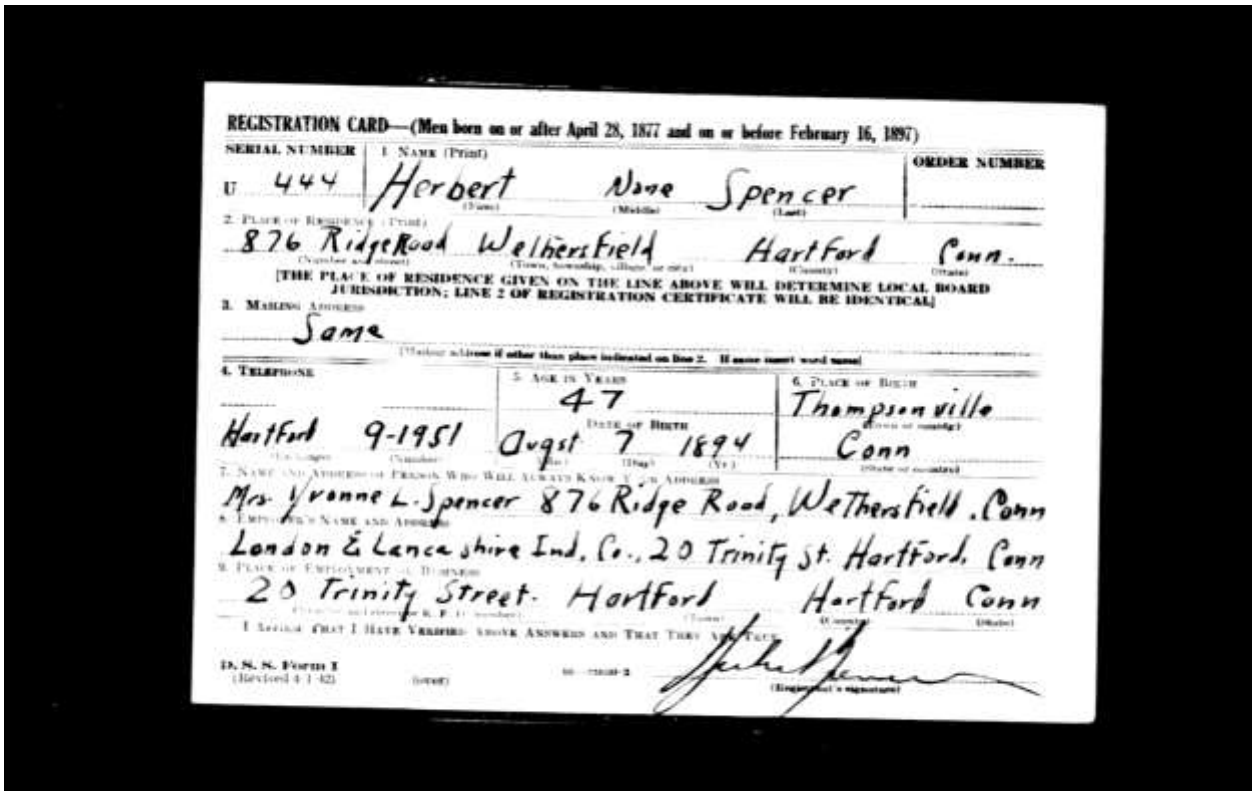 REGISTRATION CARD—(Men born on or after April 28, 1877 and on or before February 16, 1897)
SERIAL NUMBER 1. NAME (Print) ORDER NUMBER
U 444 Herbert None Spencer
(First) (Middle) (Last)
2. PLACE OF RESIDENCE (Print)
876 Ridge Road Wethersfield Hartford Conn.
(Number and street) (Town, township, village, or city) (County) (State)
[THE PLACE OF RESIDENCE GIVEN ON THE LINE ABOVE WILL DETERMINE LOCAL BOARD
JURISDICTION; LINE 2 OF REGISTRATION CERTIFICATE WILL BE IDENTICAL]
3. MAILING ADDRESS
Same
[Mailing address if other than place indicated on line 2. If same insert word same]
4. TELEPHONE 5. AGE IN YEARS 6. PLACE OF BIRTH
47 Thompsonville
DATE OF BIRTH (Town or county)
Hartford 9-1951 Augst 7 1894 Conn
(Exchange) (Number) (Mo.) (Day) (Yr.) (State or country)
7. NAME AND ADDRESS OF PERSON WHO WILL ALWAYS KNOW YOUR ADDRESS
Mrs Yvonne L. Spencer 876 Ridge Road, Wethersfield, Conn
8. EMPLOYER'S NAME AND ADDRESS
London & Lancashire Ind. Co., 20 Trinity St. Hartford, Conn
9. PLACE OF EMPLOYMENT OR BUSINESS
20 Trinity Street. Hartford Hartford Conn
(Number and street or R. F. D. number) (Town) (County) (State)
I AFFIRM THAT I HAVE VERIFIED ABOVE ANSWERS AND THAT THEY ARE TRUE.
D. S. S. Form 1
(Revised 4-1-42) (over) (Registrant's signature)